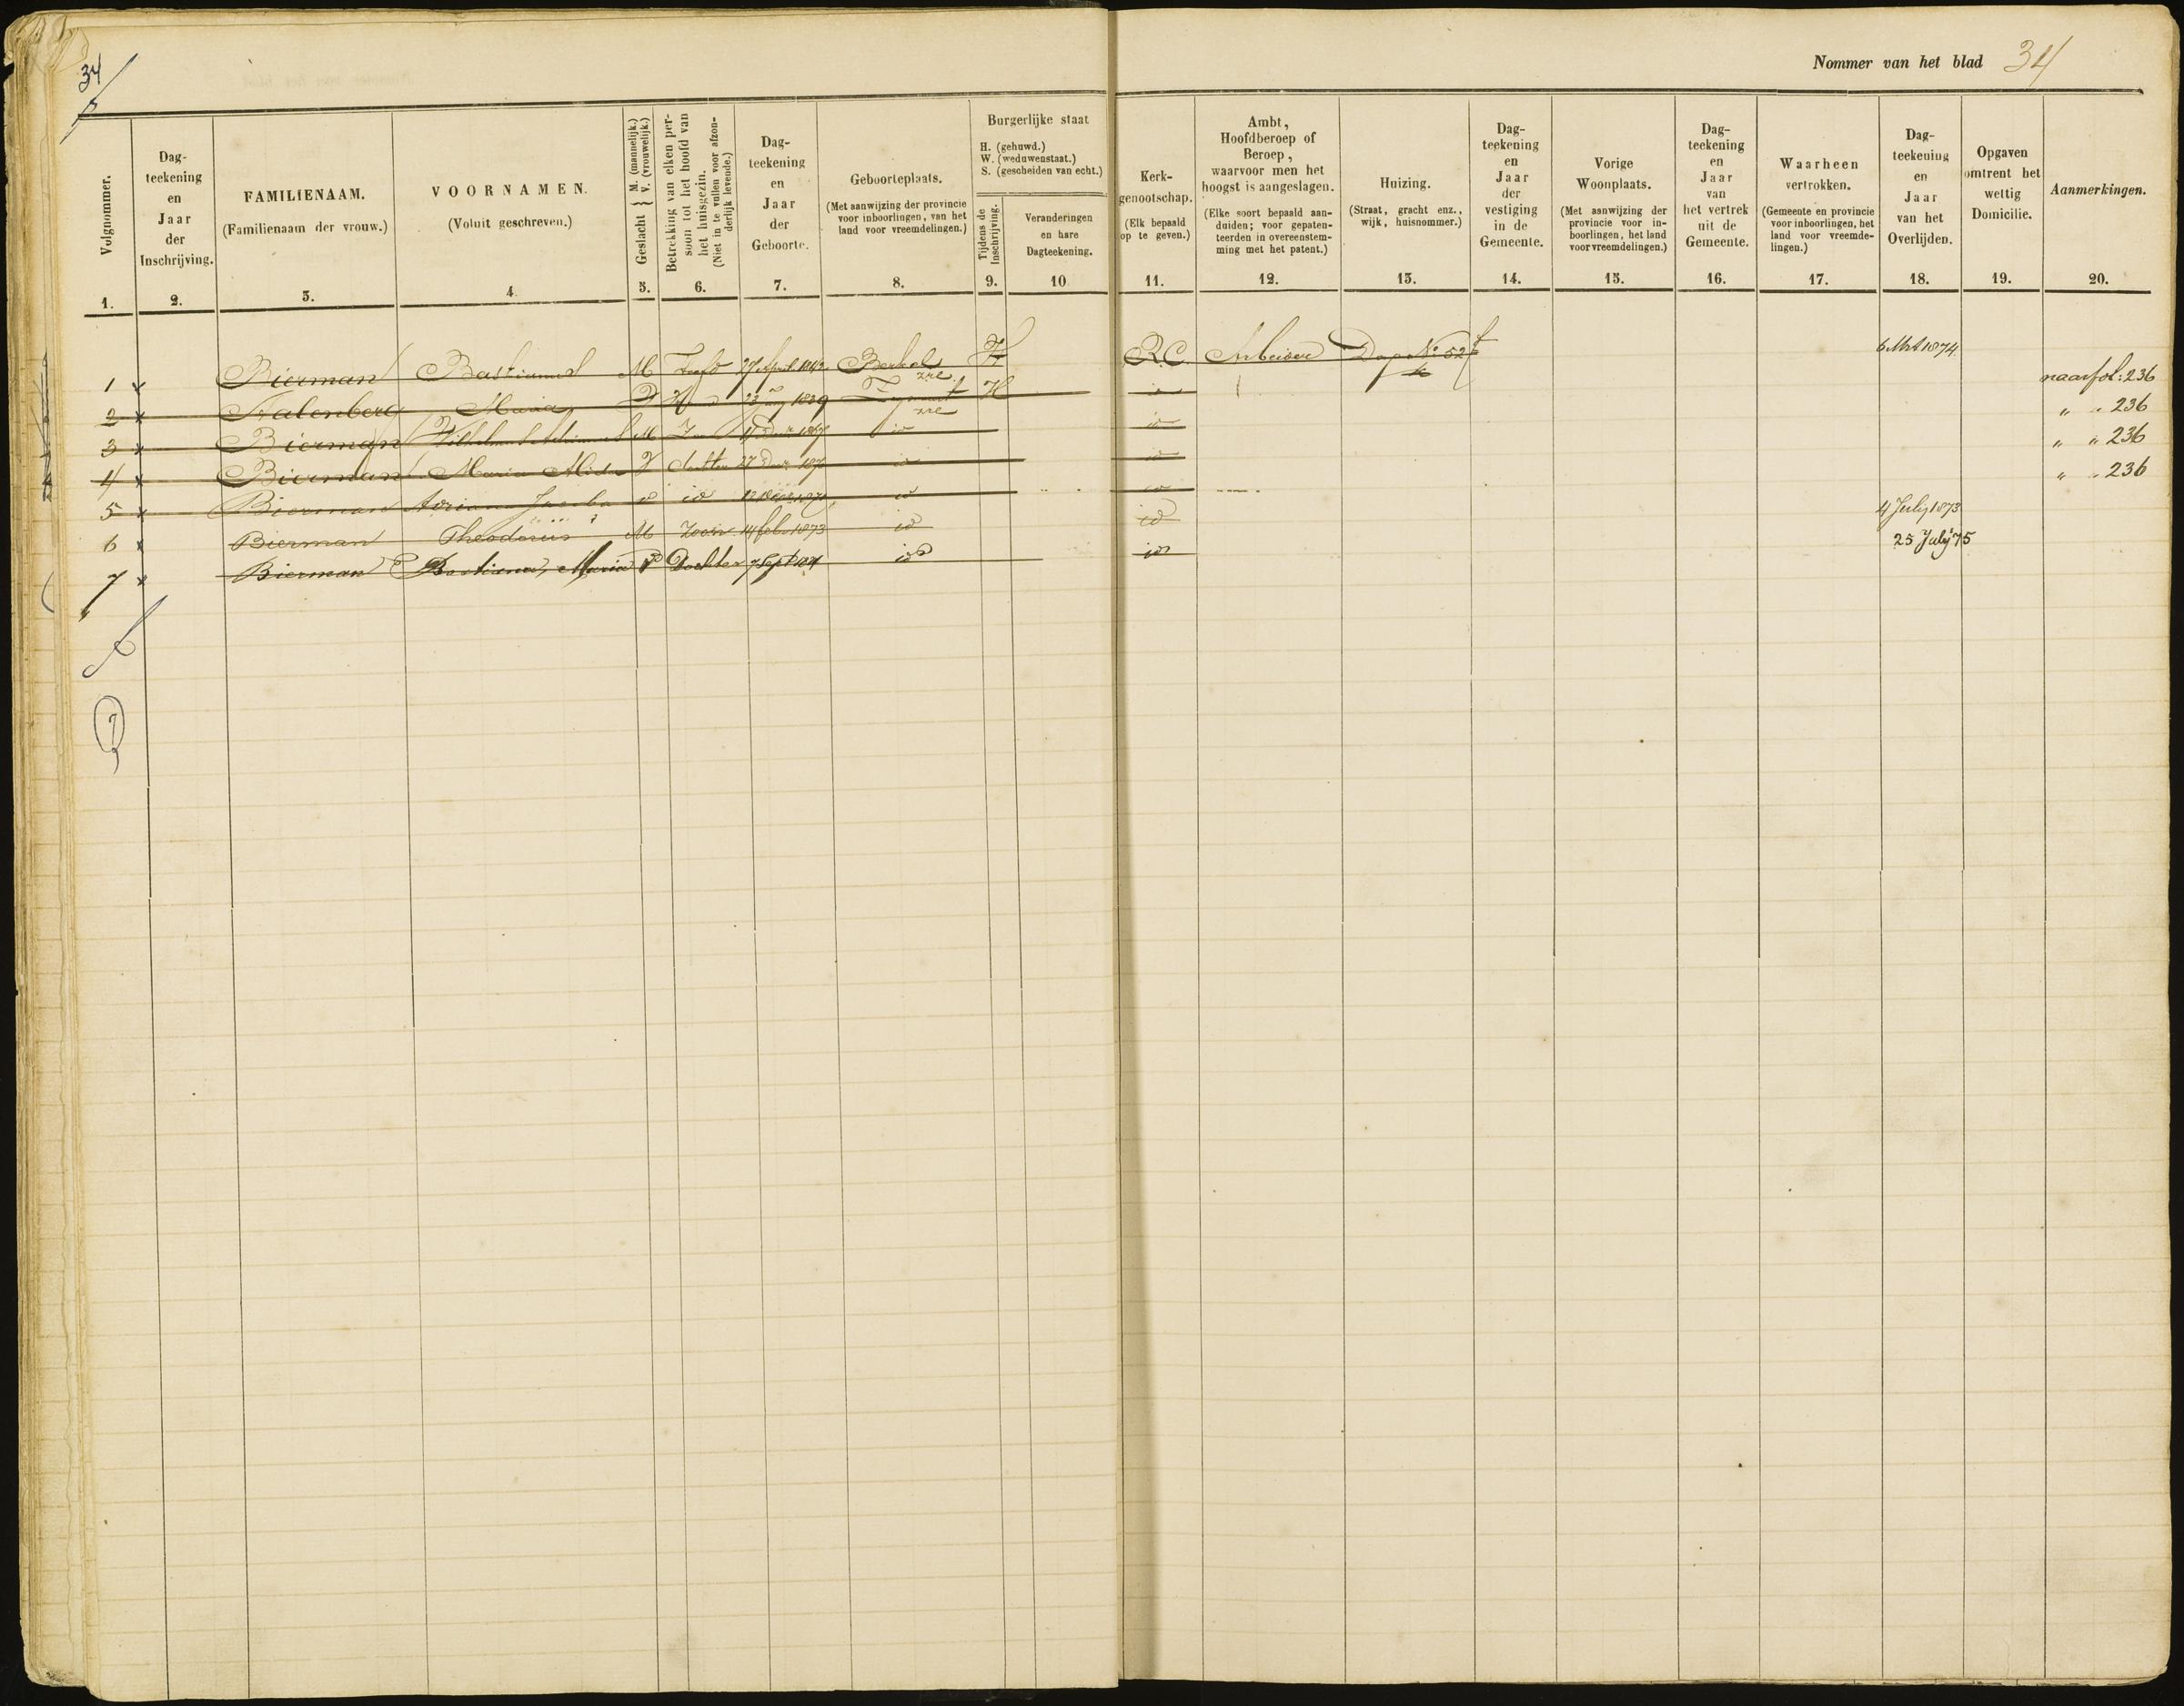 34
Nommer van het blad 34
Volgnommer.
1.
Dag-
teekening
en
Jaar
der
Inschrijving.
2.
FAMILIENAAM.
(Familienaam der vrouw.)
3.
VOORNAMEN.
(Voluit geschreven.)
4.
Geslacht { M. (mannelijk.) V. (vrouwelijk.)
5.
Betrekking van elken per-
soon tot het hoofd van
het huisgezin.
(Niet in te vullen voor afzon-
derlijk levende.)
6.
Dag-
teekening
en
Jaar
der
Geboorte.
7.
Geboorteplaats.
(Met aanwijzing der provincie
voor inboorlingen, van het
land voor vreemdelingen.)
8.
Burgerlijke staat
H. (gehuwd.)
W. (weduwenstaat.)
S. (gescheiden van echt.)
Tijdens de
Inschrijving.
9.
Veranderingen
en hare
Dagteekening.
10
Kerk-
genootschap.
(Elk bepaald
op te geven.)
11.
Ambt,
Hoofdberoep of
Beroep,
waarvoor men het
hoogst is aangeslagen.
(Elke soort bepaald aan-
duiden; voor gepaten-
teerden in overeenstem-
ming met het patent.)
12.
Huizing.
(Straat, gracht enz.,
wijk, huisnommer.)
13.
Dag-
teekening
en
Jaar
der
vestiging
in de
Gemeente.
14.
Vorige
Woonplaats.
(Met aanwijzing der
provincie voor in-
boorlingen, het land
voor vreemdelingen.)
15.
Dag-
teekening
en
Jaar
van
het vertrek
uit de
Gemeente.
16.
Waarheen
vertrokken.
(Gemeente en provincie
voor inboorlingen, het
land voor vreemde-
lingen.)
17.
Dag-
teekening
en
Jaar
van het
Overlijden.
18.
Opgaven
omtrent het
wettig
Domicilie.
19.
Aanmerkingen.
20.
1 x Bierman Bastianus M Hoofd 27 April Berkel H R.C. Arbeider Dorp No 52 6 Mrt 1874
2 x Maria 1839 H id naar fol: 236
3 x Bierman M id id " " 236
4 x Bierman Maria Alida V dochter 27 id id " " 236
5 x Bierman Adriana Jacoba id id id id " " 236
6 x Bierman Theodorus M Zoon 14 febr 1873 id id 4 July 1873
7 x Bierman Bastiana, Maria V Dochter 7 Sept id id 25 July 75
7